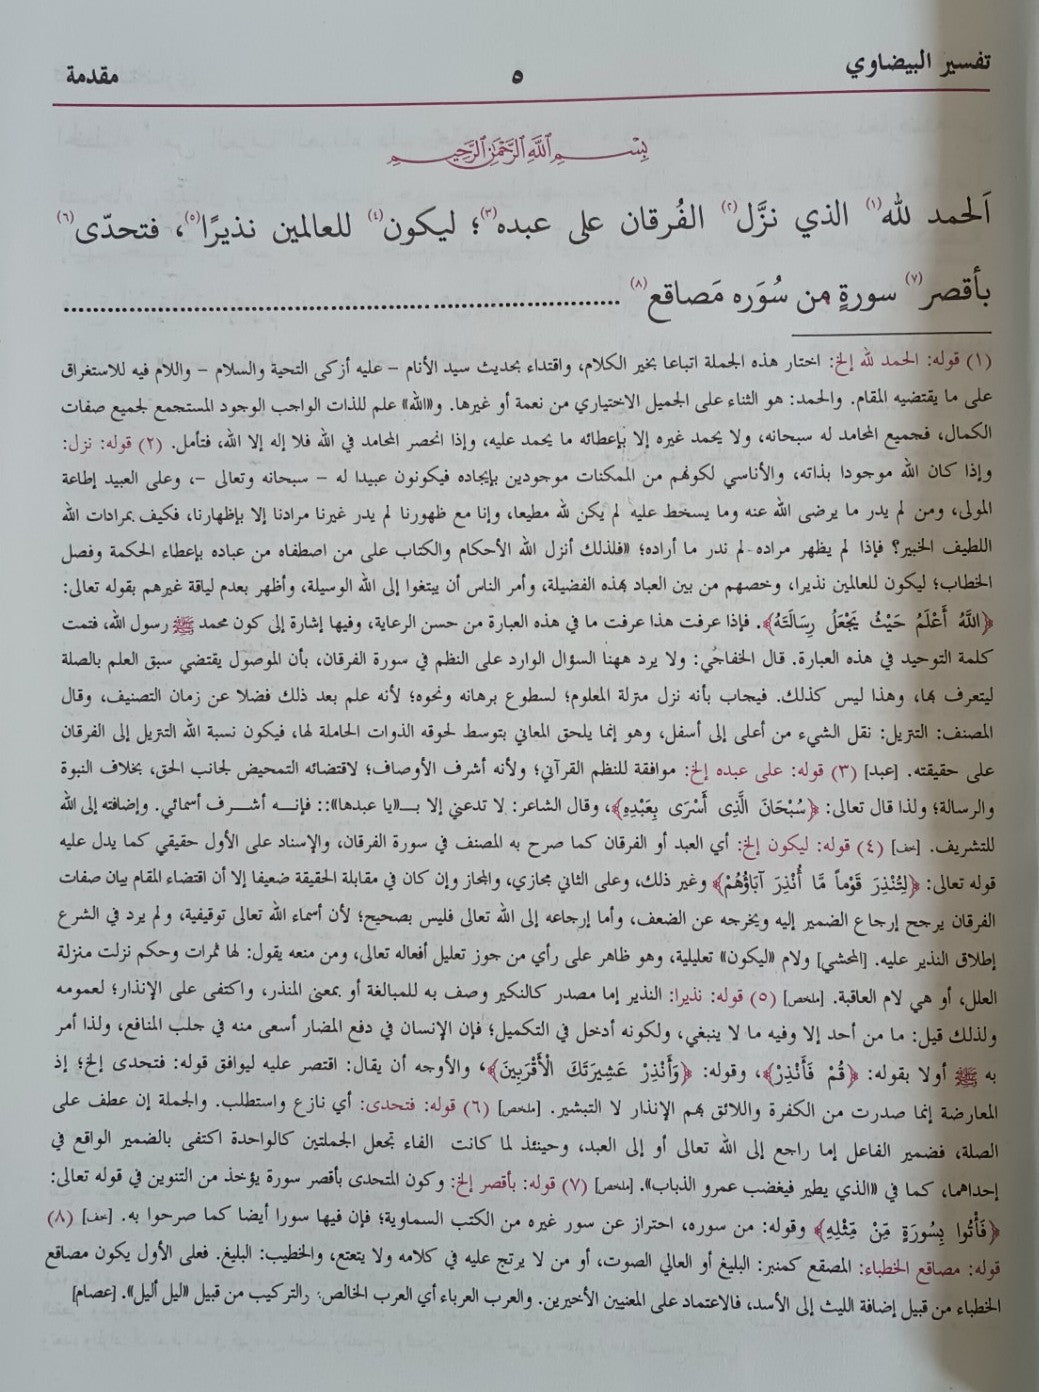 تفسير البيضاوي ٥ مقدمة
بِسْمِ ٱللَّهِ ٱلرَّحْمَٰنِ ٱلرَّحِيمِ
اَلحمد لله(١) الذي نزَّل(٢) الفُرقان على عبده(٣)؛ ليكون(٤) للعالمين نذيرًا(٥)، فتحدّى(٦)
بأقصر(٧) سورةٍ من سُوَره مَصاقع(٨) ................................................................
(١) قوله: الحمد لله إلخ: اختار هذه الجملة اتباعا بخير الكلام، واقتداء بحديث سيد الأنام – عليه أزكى التحية والسلام – واللام فيه للاستغراق
على ما يقتضيه المقام. والحمد: هو الثناء على الجميل الاختياري من نعمة أو غيرها. و«الله» علم للذات الواجب الوجود المستجمع لجميع صفات
الكمال، فجميع المحامد له سبحانه، ولا يحمد غيره إلا بإعطائه ما يحمد عليه، وإذا انحصر المحامد في الله فلا إله إلا الله، فتأمل. (٢) قوله: نزل:
وإذا كان الله موجودا بذاته، والأناسي لكونهم من الممكنات موجودين بإيجاده فيكونون عبيدا له – سبحانه وتعالى –، وعلى العبيد إطاعة
المولى، ومن لم يدر ما يرضى الله عنه وما يسخط عليه لم يكن لله مطيعا، وإنا مع ظهورنا لم يدر غيرنا مرادنا إلا بإظهارنا، فكيف بمرادات الله
اللطيف الخبير؟ فإذا لم يظهر مراده لم ندر ما أراده؛ «فلذلك أنزل الله الأحكام والكتاب على من اصطفاه من عباده بإعطاء الحكمة وفصل
الخطاب؛ ليكون للعالمين نذيرا، وخصهم من بين العباد بهذه الفضيلة، وأمر الناس أن يبتغوا إلى الله الوسيلة، وأظهر بعدم لياقة غيرهم بقوله تعالى:
﴿اللَّهُ أَعْلَمُ حَيْثُ يَجْعَلُ رِسَالَتَهُ﴾. فإذا عرفت هذا عرفت ما في هذه العبارة من حسن الرعاية، وفيها إشارة إلى كون محمد ﷺ رسول الله، فتمت
كلمة التوحيد في هذه العبارة. قال الخفاجي: ولا يرد ههنا السؤال الوارد على النظم في سورة الفرقان، بأن الموصول يقتضي سبق العلم بالصلة
ليتعرف بها، وهذا ليس كذلك. فيجاب بأنه نزل منزلة المعلوم؛ لسطوع برهانه ونحوه؛ لأنه علم بعد ذلك فضلا عن زمان التصنيف، وقال
المصنف: التنزيل: نقل الشيء من أعلى إلى أسفل، وهو إنما يلحق المعاني بتوسط لحوقه الذوات الحاملة لها، فيكون نسبة الله التنزيل إلى الفرقان
على حقيقته. [عبد] (٣) قوله: على عبده إلخ: موافقة للنظم القرآني؛ ولأنه أشرف الأوصاف؛ لاقتضائه التمحيض لجانب الحق، بخلاف النبوة
والرسالة؛ ولذا قال تعالى: ﴿سُبْحَانَ الَّذِى أَسْرَى بِعَبْدِهِ﴾، وقال الشاعر: لا تدعني إلا بـ«يا عبدها»:: فإنه أشرف أسمائي. وإضافته إلى الله
للتشريف. [خف] (٤) قوله: ليكون إلخ: أي العبد أو الفرقان كما صرح به المصنف في سورة الفرقان، والإسناد على الأول حقيقي كما يدل عليه
قوله تعالى: ﴿لِتُنْذِرَ قَوْماً مَّا أُنْذِرَ آبَاؤُهُمْ﴾ وغير ذلك، وعلى الثاني مجازي، والمجاز وإن كان في مقابلة الحقيقة ضعيفا إلا أن اقتضاء المقام بيان صفات
الفرقان يرجح إرجاع الضمير إليه ويخرجه عن الضعف، وأما إرجاعه إلى الله تعالى فليس بصحيح؛ لأن أسماء الله تعالى توقيفية، ولم يرد في الشرع
إطلاق النذير عليه. [المحشي] ولام «ليكون» تعليلية، وهو ظاهر على رأي من جوز تعليل أفعاله تعالى، ومن منعه يقول: لها ثمرات وحكم نزلت منزلة
العلل، أو هي لام العاقبة. [ملخص] (٥) قوله: نذيرا: النذير إما مصدر كالنكير وصف به للمبالغة أو بمعنى المنذر، واكتفى على الإنذار؛ لعمومه
ولذلك قيل: ما من أحد إلا وفيه ما لا ينبغي، ولكونه أدخل في التكميل؛ فإن الإنسان في دفع المضار أسعى منه في جلب المنافع، ولذا أمر
به ﷺ أولا بقوله: ﴿قُمْ فَأَنْذِرْ﴾، وقوله: ﴿وَأَنْذِرْ عَشِيرَتَكَ الْأَقْرَبِينَ﴾، والأوجه أن يقال: اقتصر عليه ليوافق قوله: فتحدى إلخ؛ إذ
المعارضة إنما صدرت من الكفرة واللائق بهم الإنذار لا التبشير. [ملخص] (٦) قوله: فتحدى: أي نازع واستطلب. والجملة إن عطف على
الصلة، فضمير الفاعل إما راجع إلى الله تعالى أو إلى العبد، وحينئذ لما كانت الفاء تجعل الجملتين كالواحدة اكتفى بالضمير الواقع في
إحداهما، كما في «الذي يطير فيغضب عمرو الذباب». [ملخص] (٧) قوله: بأقصر إلخ: وكون المتحدى بأقصر سورة يؤخذ من التنوين في قوله تعالى:
﴿فَأْتُوا بِسُورَةٍ مِّنْ مِّثْلِهِ﴾ وقوله: من سوره، احتراز عن سور غيره من الكتب السماوية؛ فإن فيها سورا أيضا كما صرحوا به. [خف] (٨)
قوله: مصاقع الخطباء: المصقع كمنبر: البليغ أو العالي الصوت، أو من لا يرتج عليه في كلامه ولا يتعتع، والخطيب: البليغ. فعلى الأول يكون مصاقع
الخطباء من قبيل إضافة الليث إلى الأسد، فالاعتماد على المعنيين الأخيرين. والعرب العرباء أي العرب الخالص؛ والتركيب من قبيل «ليل أليل». [عصام]